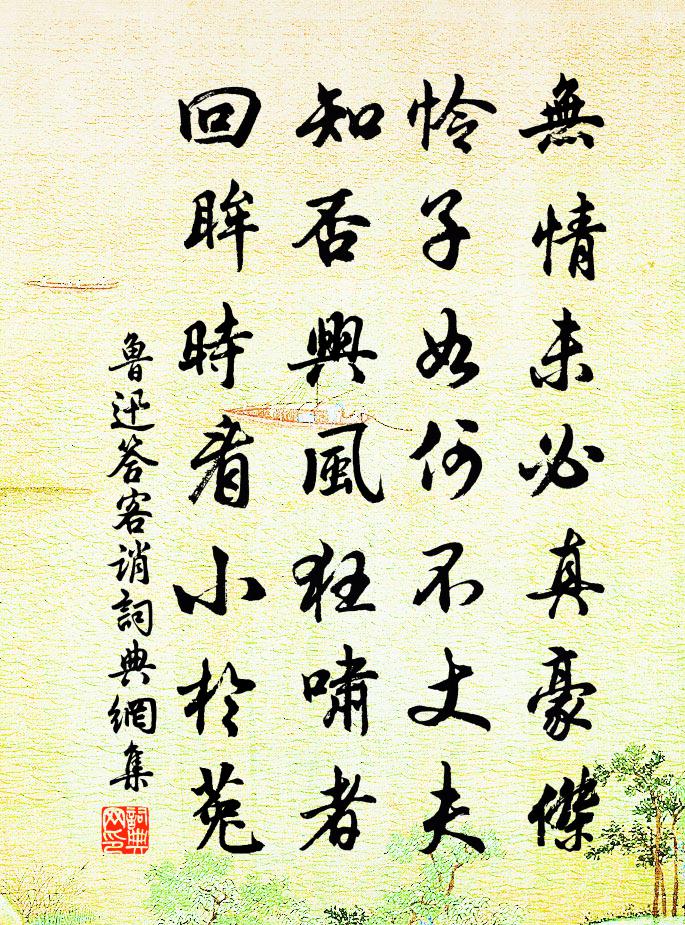 無情未必真豪傑
怜子如何不丈夫
知否興風狂嘯者
回眸時看小於菟
魯迅答客誚詞典網集
詞典网印